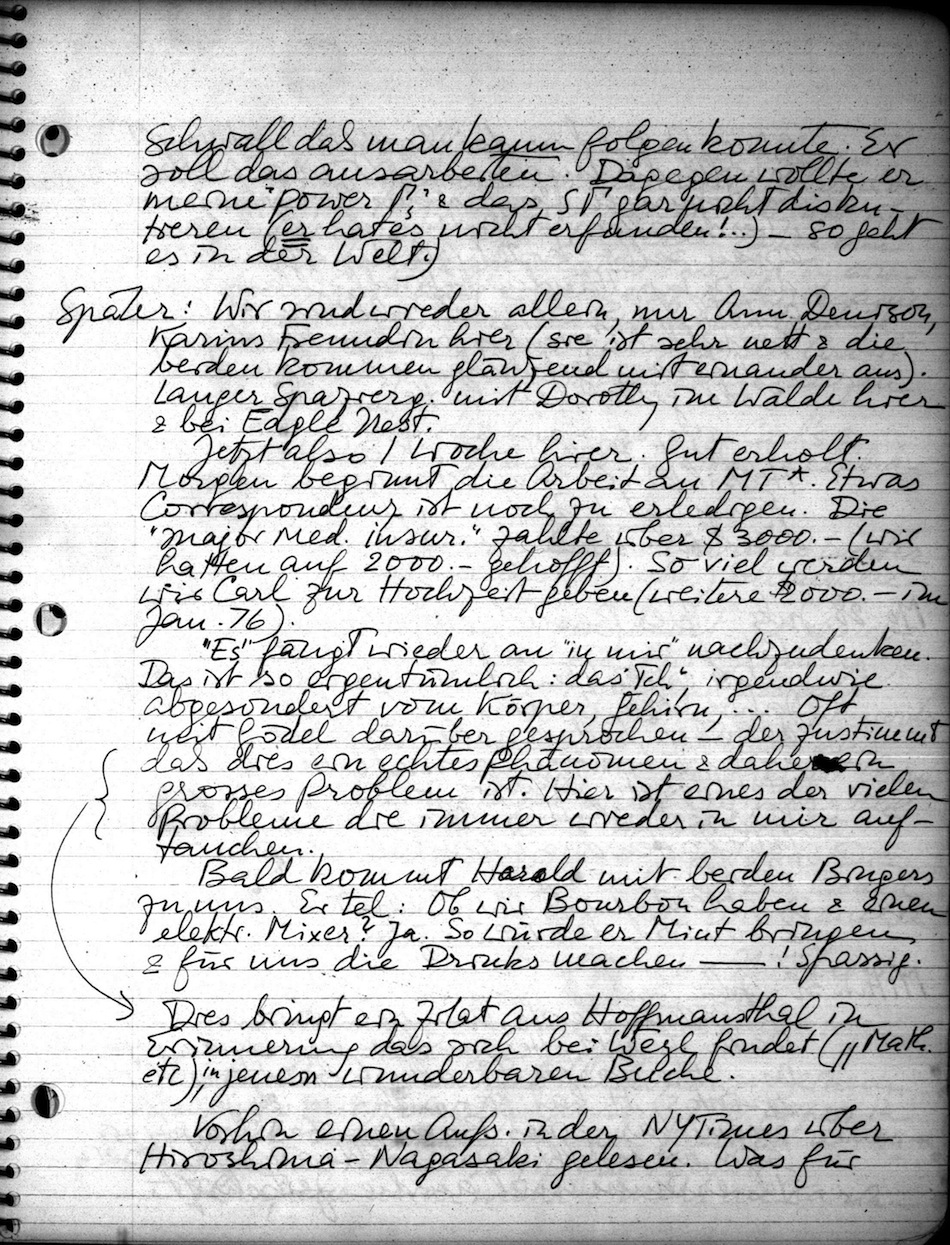 Schwall das man kaum folgen konnte. Er
soll das ausarbeiten. Dagegen wollte er
meine "power & das gar nicht disku-
tieren (er hat es nicht erfunden!..) – so geht
es in der Welt.)
Später: Wir sind wieder allein, nur Ann Denison,
Karins Freundin hier (sie ist sehr nett & die
beiden kommen glänzend miteinander aus).
Langer Spazierg. mit Dorothy im Walde hier
& bei Eagle Nest.
Jetzt also 1 Woche hier. Gut erholt.
Morgen beginnt die Arbeit an MT*. Etwas
Correspondenz ist noch zu erledigen. Die
"major med. insur." zahlte über $ 3000.– (wir
hatten auf 2000.– gehofft). So viel werden
wir Carl zur Hochzeit geben (weitere $2000.– im
Jan. 76).
"Es" fängt wieder an "in mir" nachzudenken.
Das ist so eigentümlich: das "Ich" irgendwie
abgesondert vom Körper, Gehirn, ... Oft
mit Gödel darüber gesprochen – der zustimmt
das dies ein echtes Phänomen & daher ein
grosses Problem ist. Hier ist eines der vielen
Probleme die immer wieder in mir auf-
tauchen.
Bald kommt Harold mit beiden Bingers
zu uns. Er tel: Ob wir Bourbon haben & einen
elektr. Mixer? Ja. So würde er Mint bringen
& für uns die Drinks machen —! Spassig.
Dies bringt ein Zitat aus Hoffmansthal in
Erinnerung das sich bei Weyl findet („Math.
etc), in jenem wunderbaren Buche.
Vorhin einen Aufs. in der NYTimes über
Hiroshima – Nagasaki gelesen. Was für